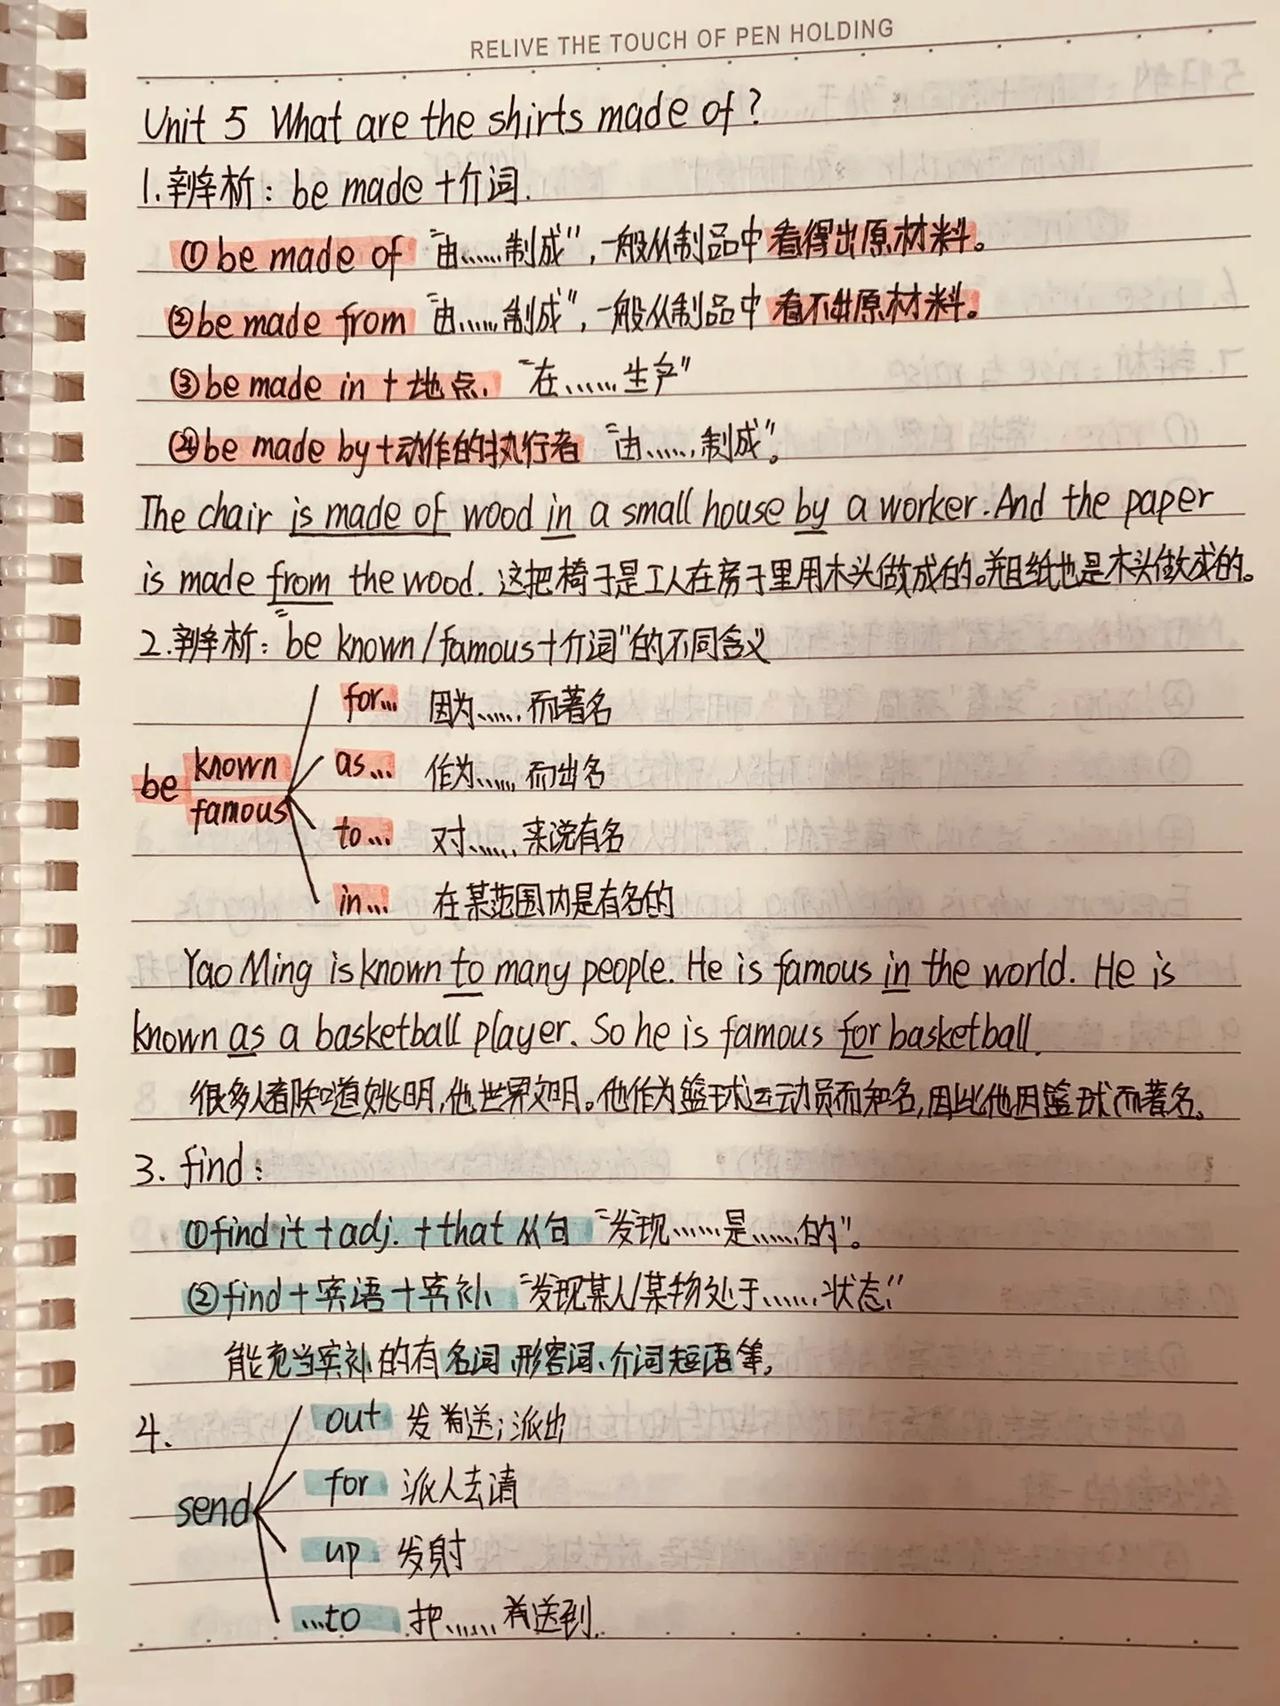 RELIVE THE TOUCH OF PEN HOLDING
Unit 5 What are the shirts made of?
1.辨析：be made +介词.
①be made of "由……制成"，一般从制品中看得出原材料。
②be made from "由……制成"，一般从制品中看不出原材料。
③be made in + 地点. "在……生产"
④be made by+动作的执行者 "由……制成"。
The chair is made of wood in a small house by a worker. And the paper
is made from the wood. 这把椅子是工人在房子里用木头做成的。并且纸也是木头做成的。
2.辨析："be known/famous+介词"的不同含义
for… 因为……而著名
be known/famous as… 作为……而出名
to… 对……来说有名
in… 在某范围内是有名的
Yao Ming is known to many people. He is famous in the world. He is
known as a basketball player. So he is famous for basketball.
很多人都知道姚明，他世界文明。他作为篮球运动员而知名，因此他因篮球而著名。
3. find：
①find it + adj. + that 从句 "发现……是……的"。
②find + 宾语 + 宾补 "发现某人/某物处于……状态"
能充当宾补的有名词、形容词、介词短语等。
4.
out 发送；派出
send for 派人去请
up 发射
…to 把……送到.